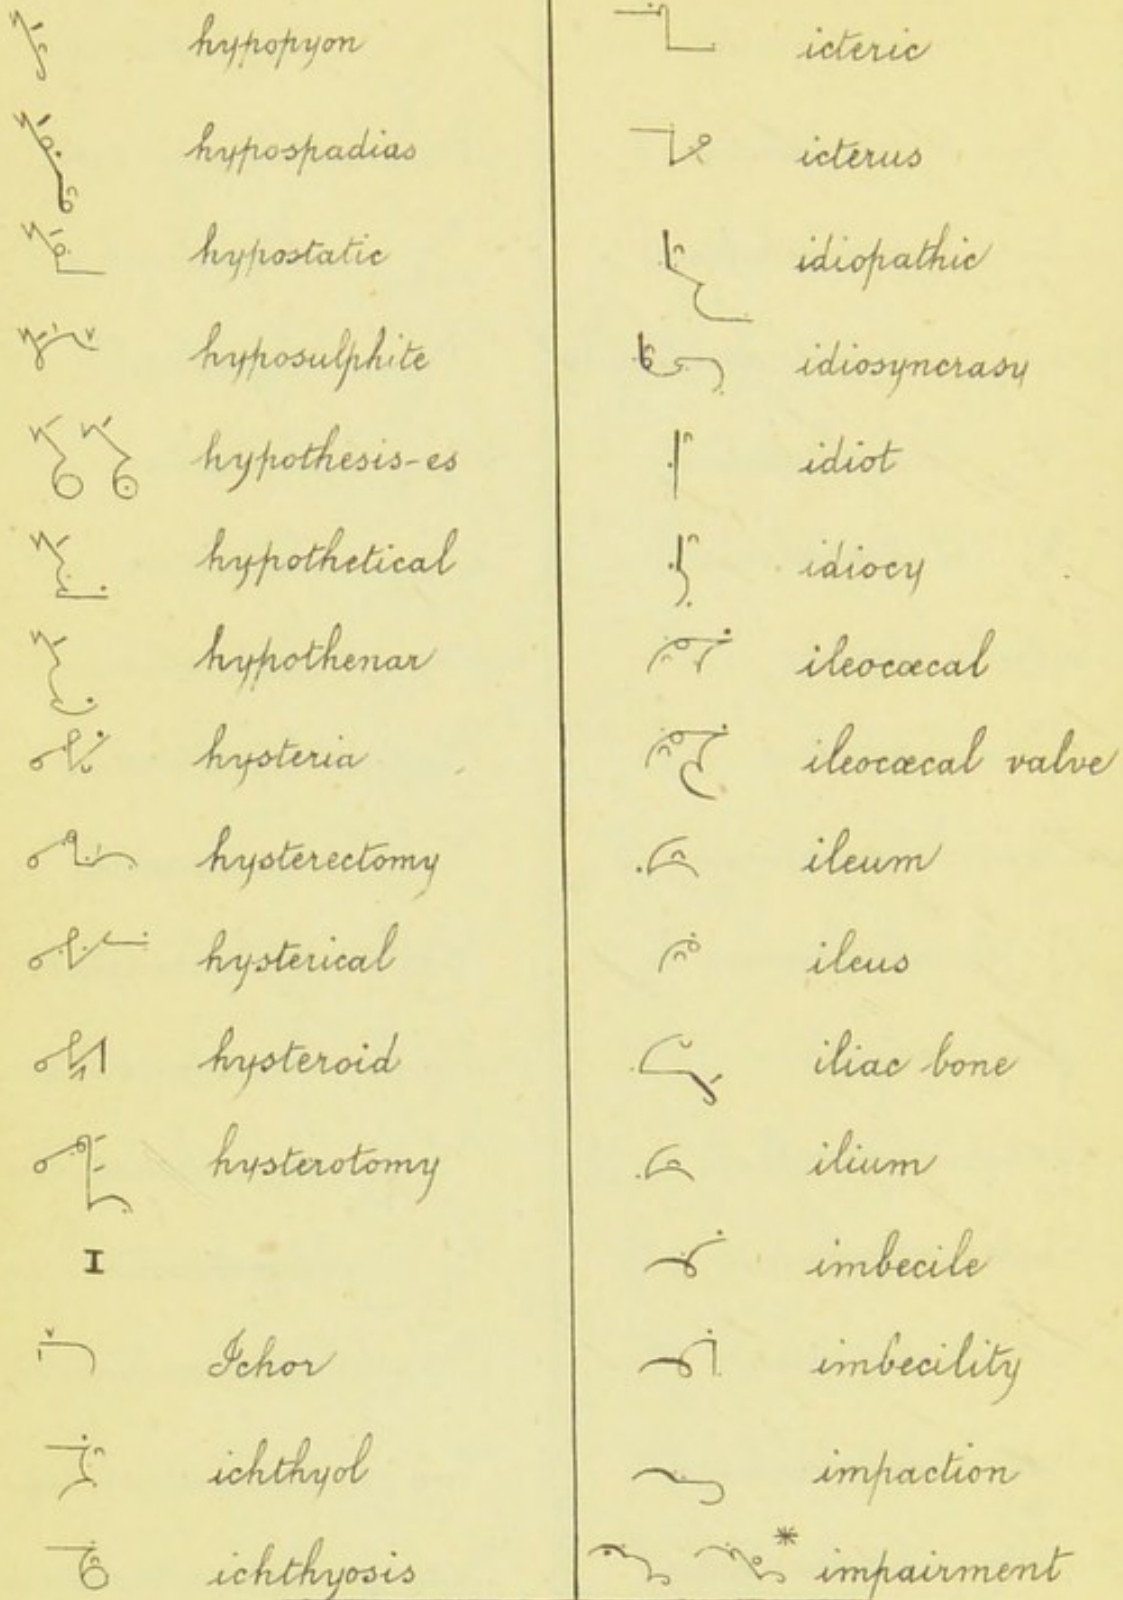 hypopyon
hypospadias
hypostatic
hyposulphite
hypothesis-es
hypothetical
hypothenar
hysteria
hysterectomy
hysterical
hysteroid
hysterotomy
I
Ichor
ichthyol
ichthyosis
icteric
icterus
idiopathic
idiosyncrasy
idiot
idiocy
ileocæcal
ileocæcal valve
ileum
ileus
iliac bone
ilium
imbecile
imbecility
impaction
* impairment